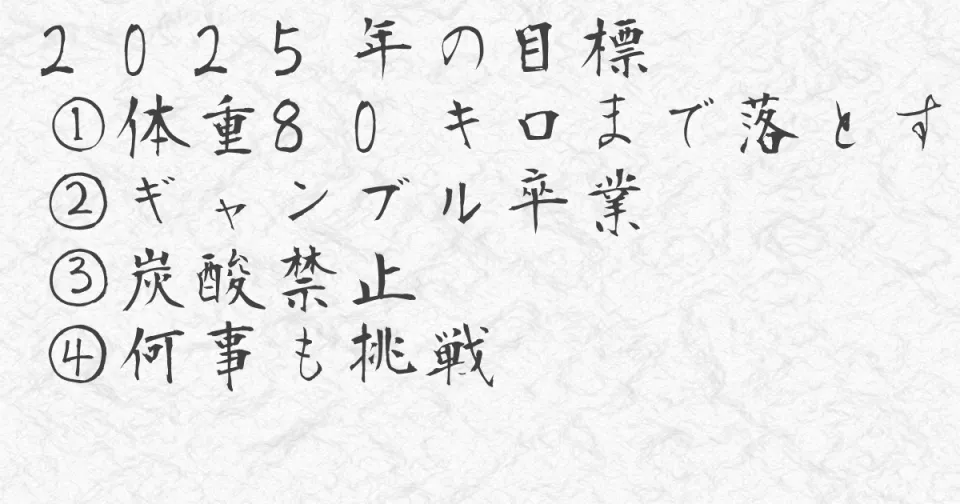 2025年の目標
①体重80キロまで落とす
②ギャンブル卒業
③炭酸禁止
④何事も挑戦